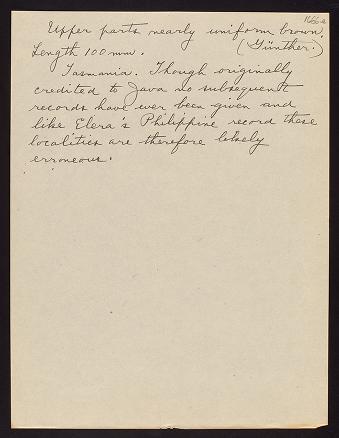 1666a
Upper parts nearly uniform brown.
Length 100 mm. (Günther.)
Tasmania. Though originally
credited to Java no subsequent
records have ever been given and
like Elera's Philippine record these
localities are therefore likely
erroneous.